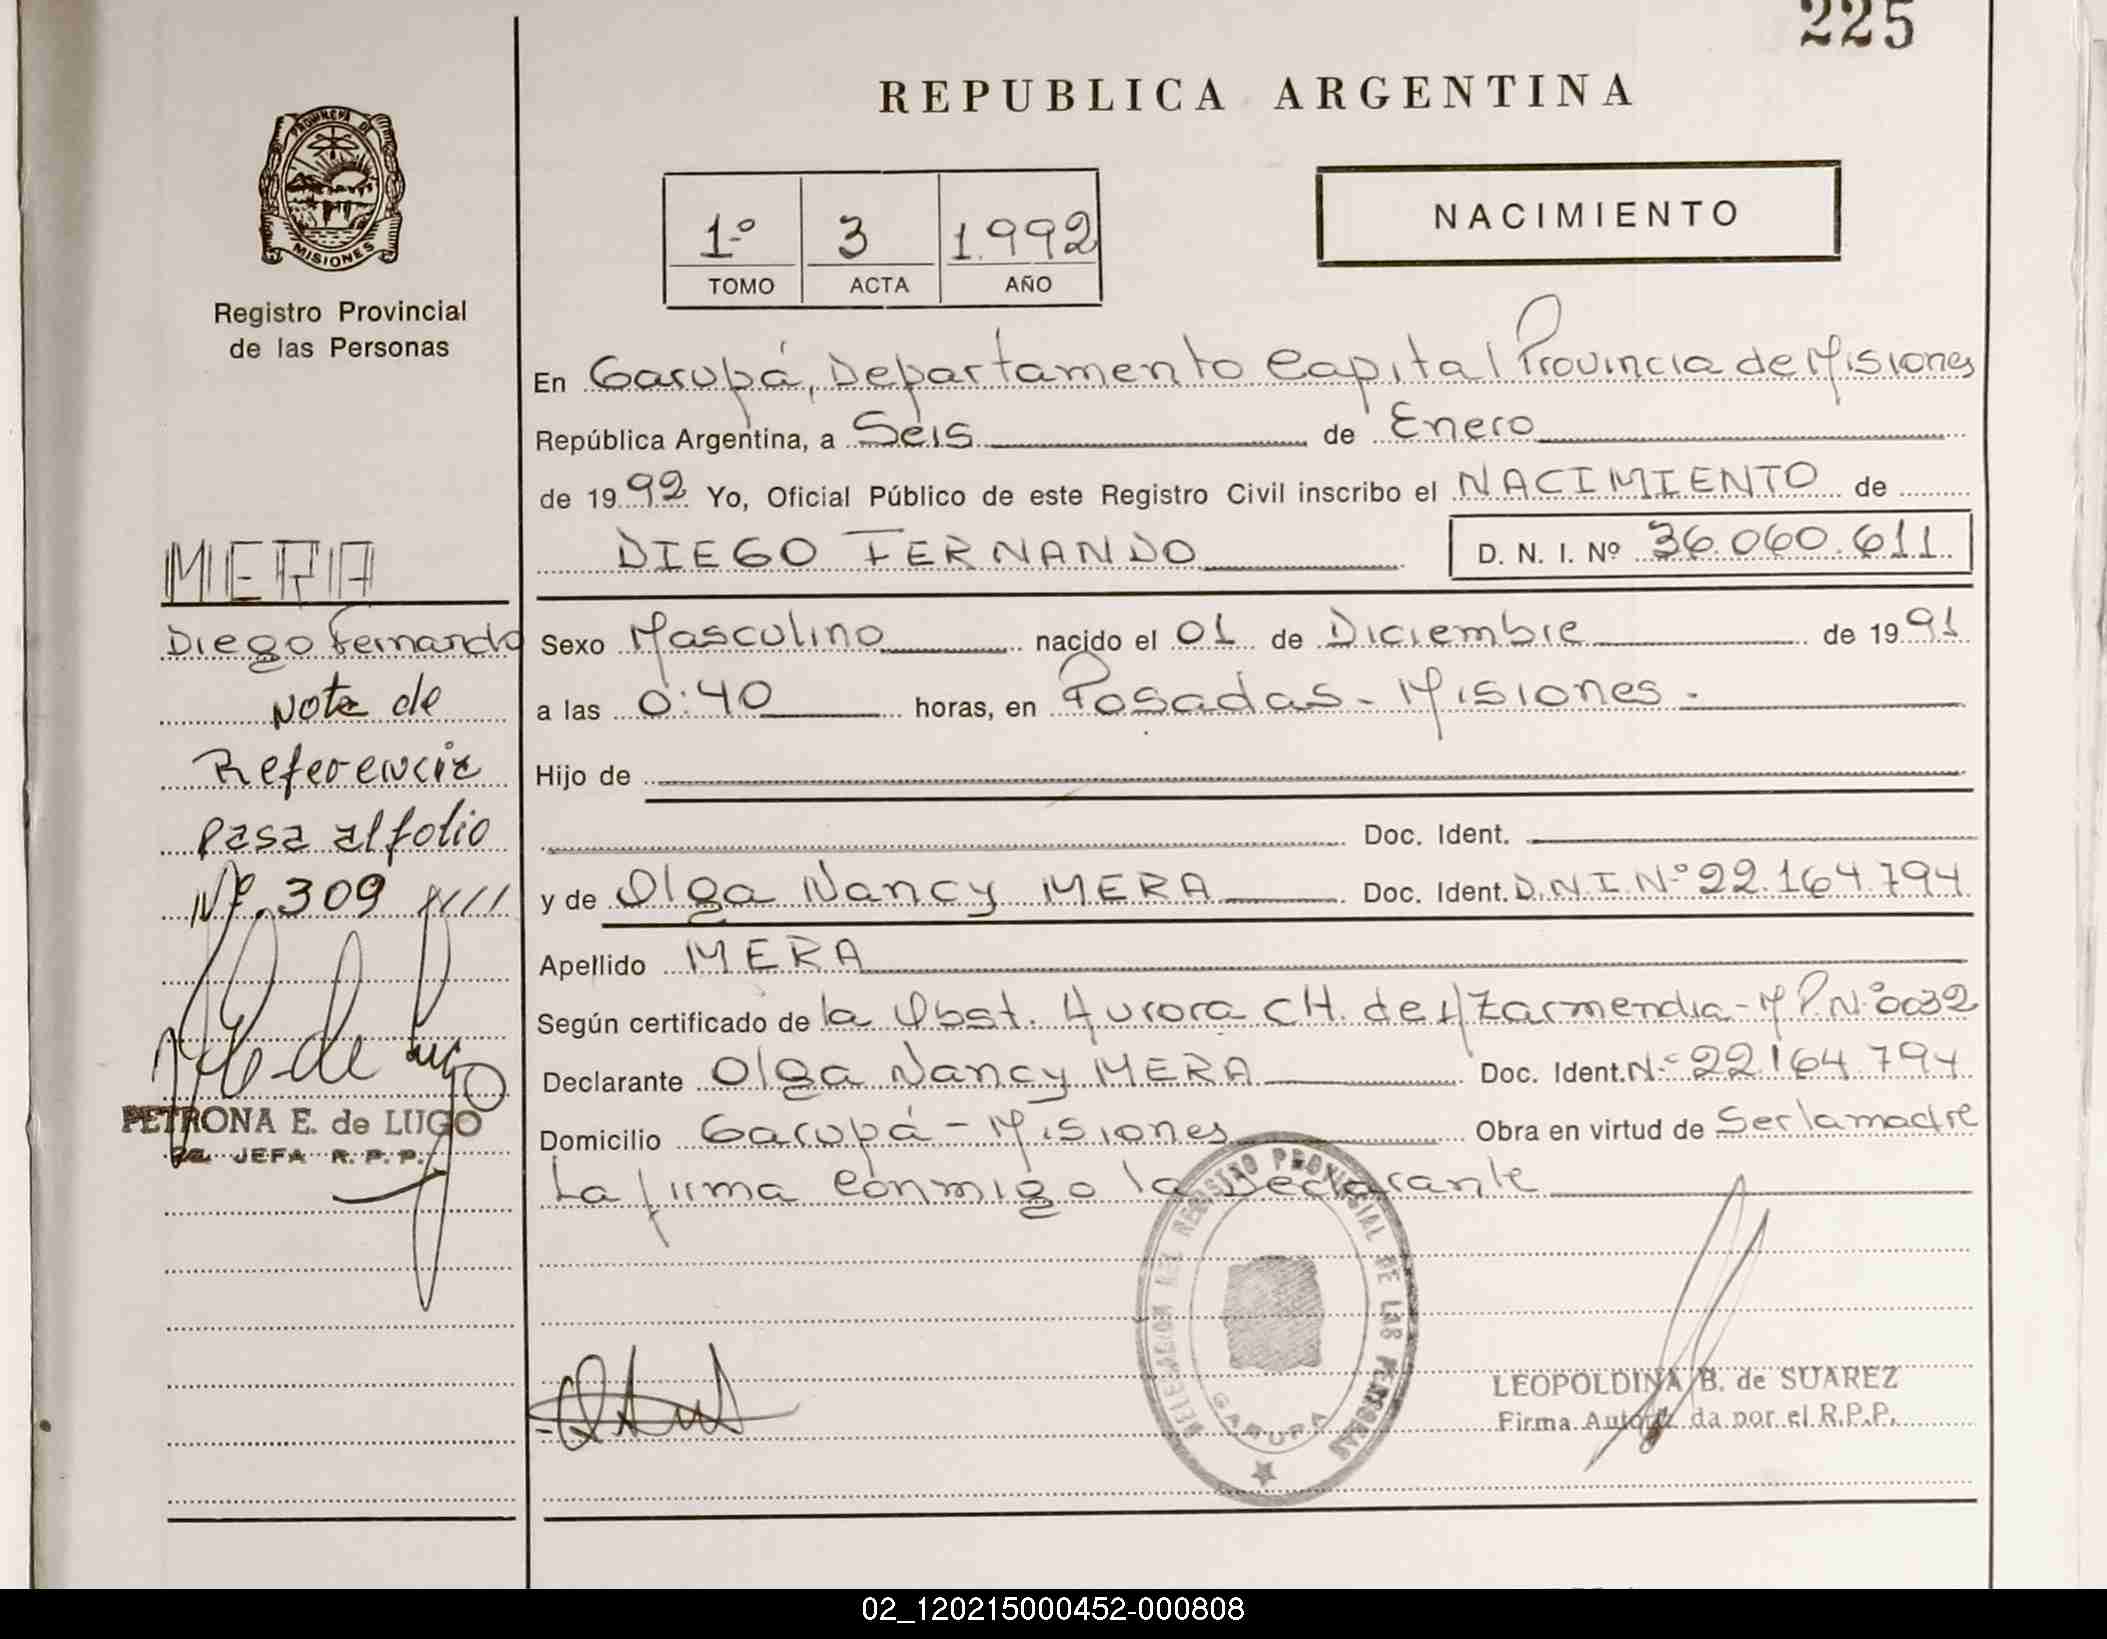 225
REPUBLICA ARGENTINA
PROVINCIA DE
MISIONES
Registro Provincial
de las Personas
1º 3 1.992
TOMO ACTA AÑO
NACIMIENTO
En Garupá, Departamento Capital Provincia de Misiones
República Argentina, a Seis de Enero
de 1992 Yo, Oficial Público de este Registro Civil inscribo el NACIMIENTO de
DIEGO FERNANDO D. N. I. Nº 36.060.611
Sexo Masculino nacido el 01 de Diciembre de 1991
a las 0:40 horas, en Posadas - Misiones.-
Hijo de
Doc. Ident.
y de Olga Nancy MERA Doc. Ident. D.N.I.Nº 22.164.794
Apellido MERA
Según certificado de la Obst. Aurora CH. de Azarmendia - M.P.Nº 0032
Declarante Olga Nancy MERA Doc. Ident. Nº 22.164.794
Domicilio Garupá - Misiones Obra en virtud de Ser la madre
La firma conmigo la Declarante
MERA
Diego Fernando
Nota de
Referencia
Pasa al folio
Nº. 309
PETRONA E. de LUGO
JEFA R. P. P.
DELEGACION DEL REGISTRO PROVINCIAL DE LAS PERSONAS
GARUPA
LEOPOLDINA B. de SUAREZ
Firma Autorizada por el R.P.P.
02_120215000452-000808